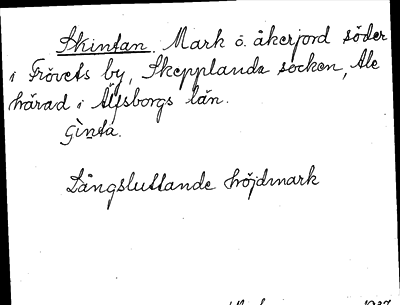 Skintan. Mark ö. åkerjord söder
i Frövets by, Skepplanda socken, Ale
härad i Älfsborgs län.
Ginta.
Långsluttande höjdmark
1937